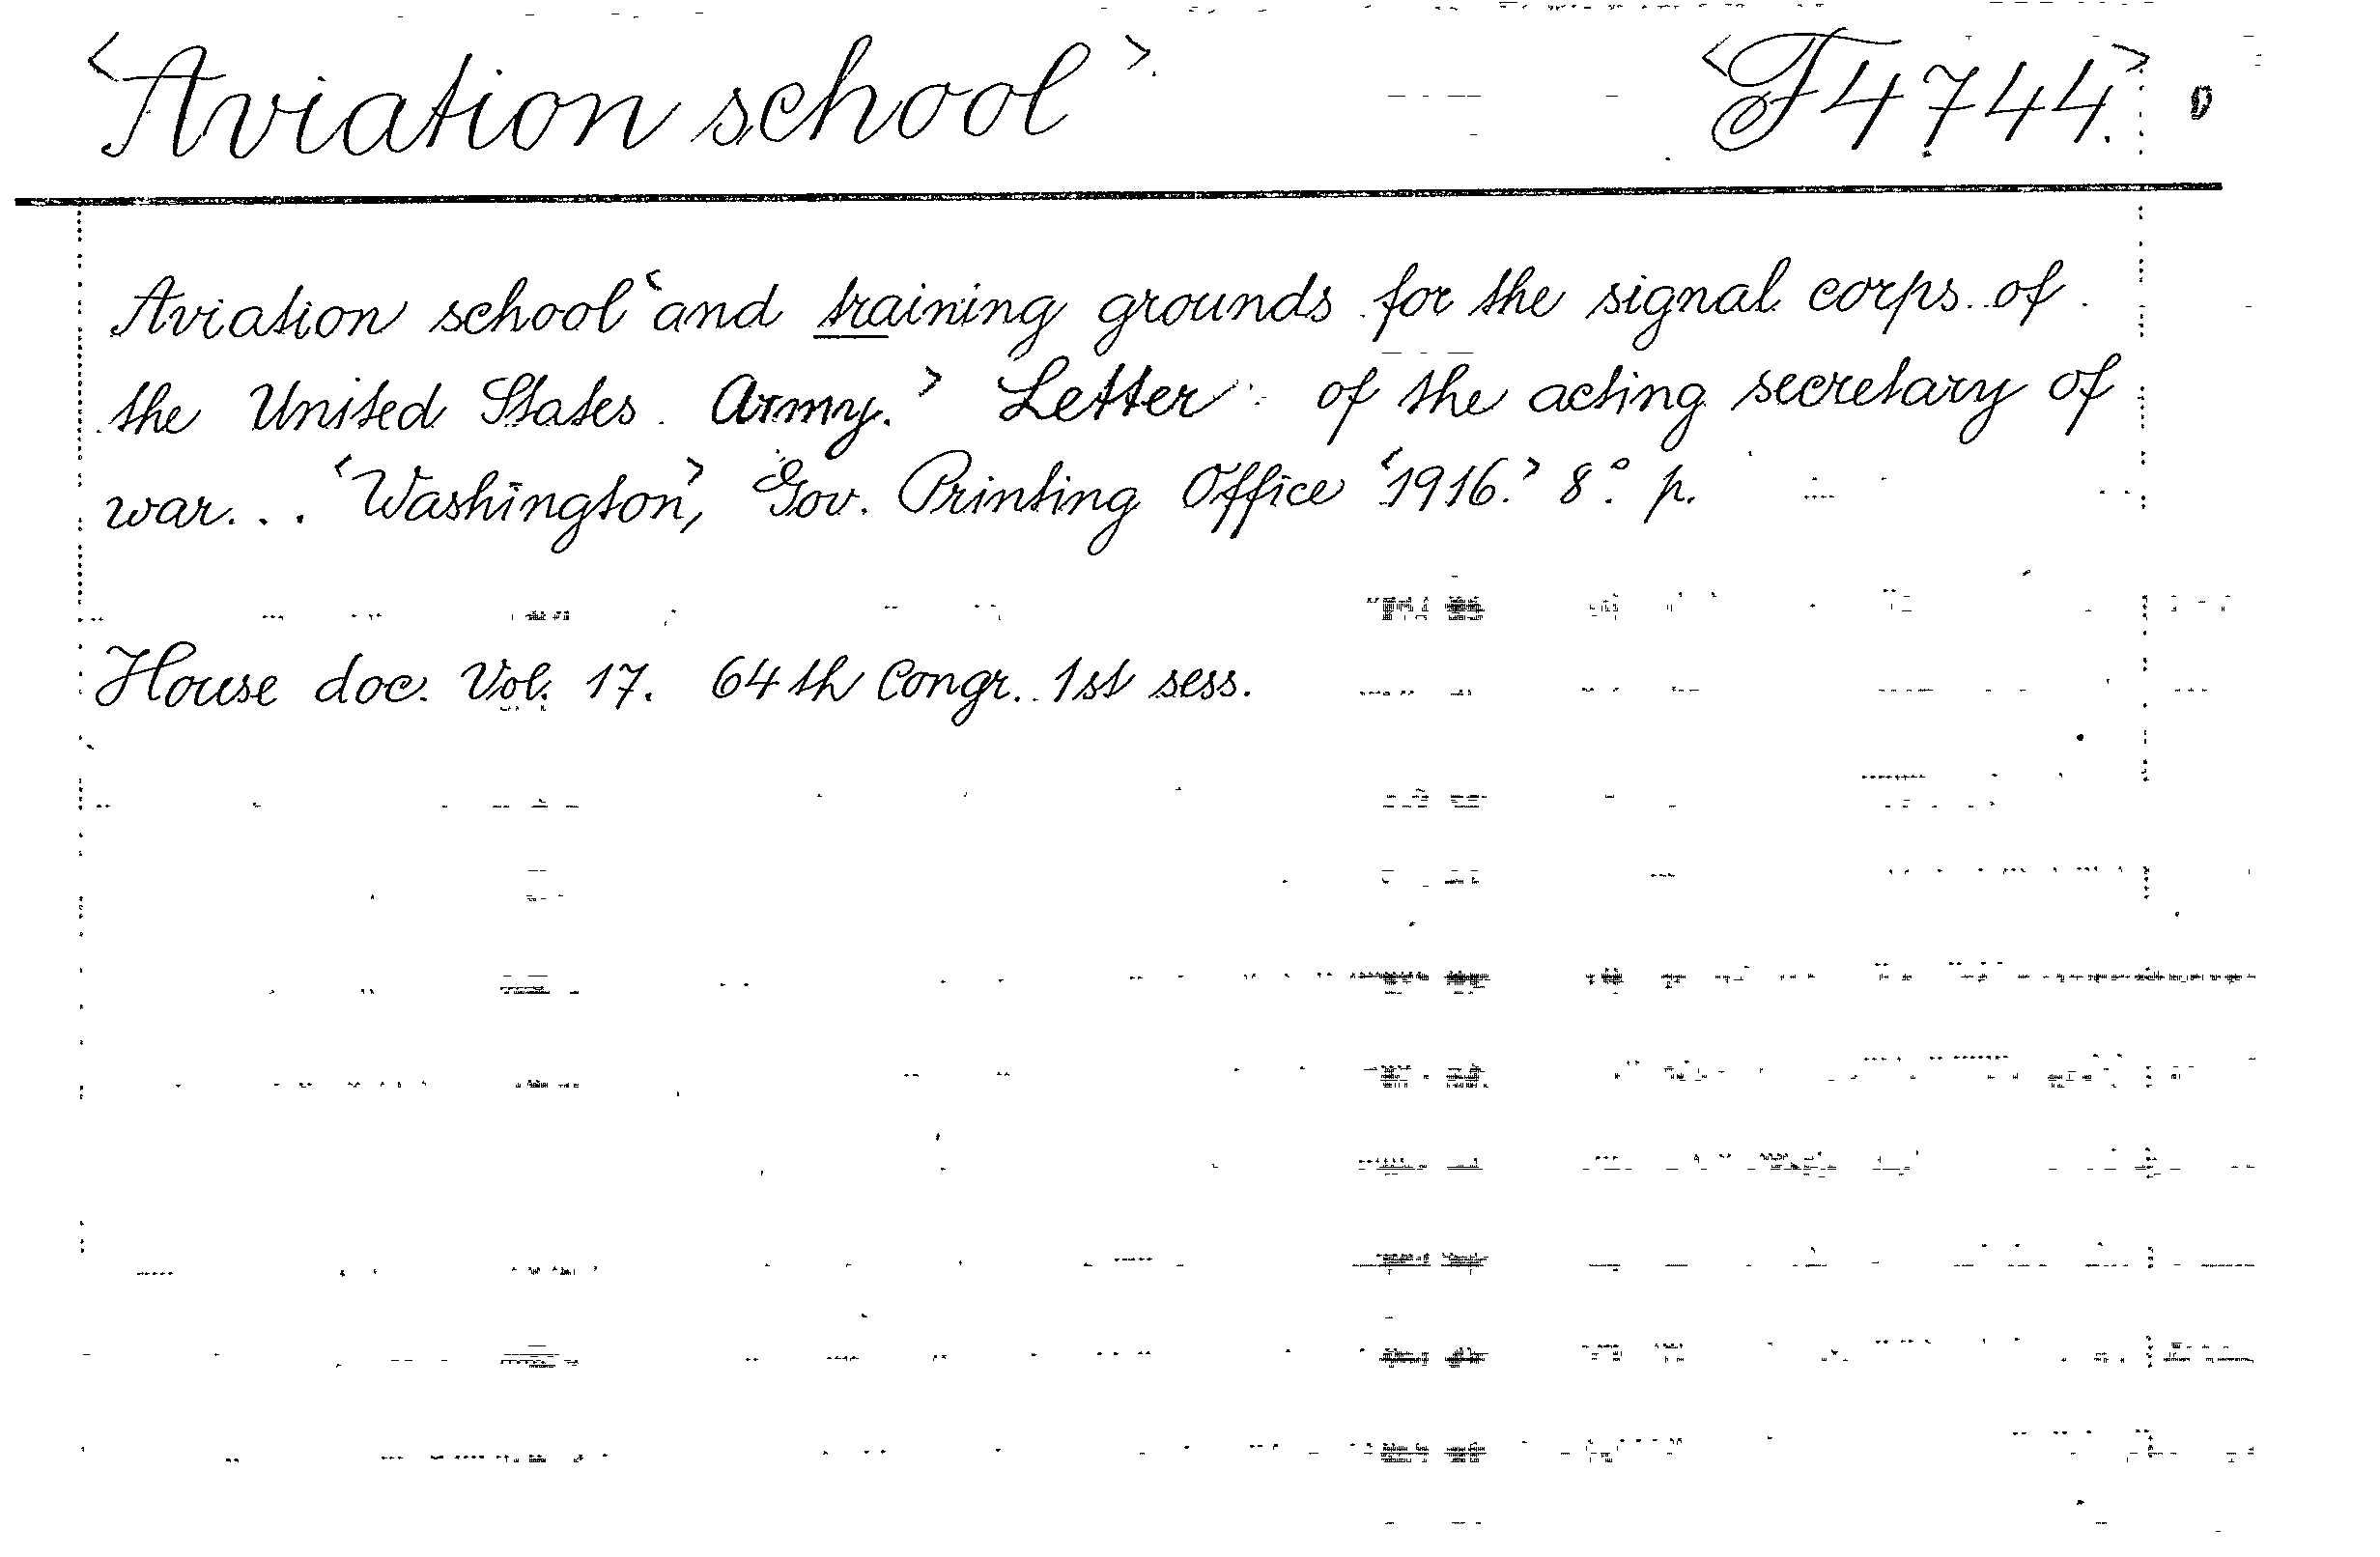 <Aviation school>. <F 4744.>
Aviation school <and training grounds for the signal corps of
the United States Army.> Letter of the acting secretary of
war... <Washington>, Gov. Printing Office <1916.> 8°. p.
House doc. Vol. 17. 64th Congr. 1st sess.